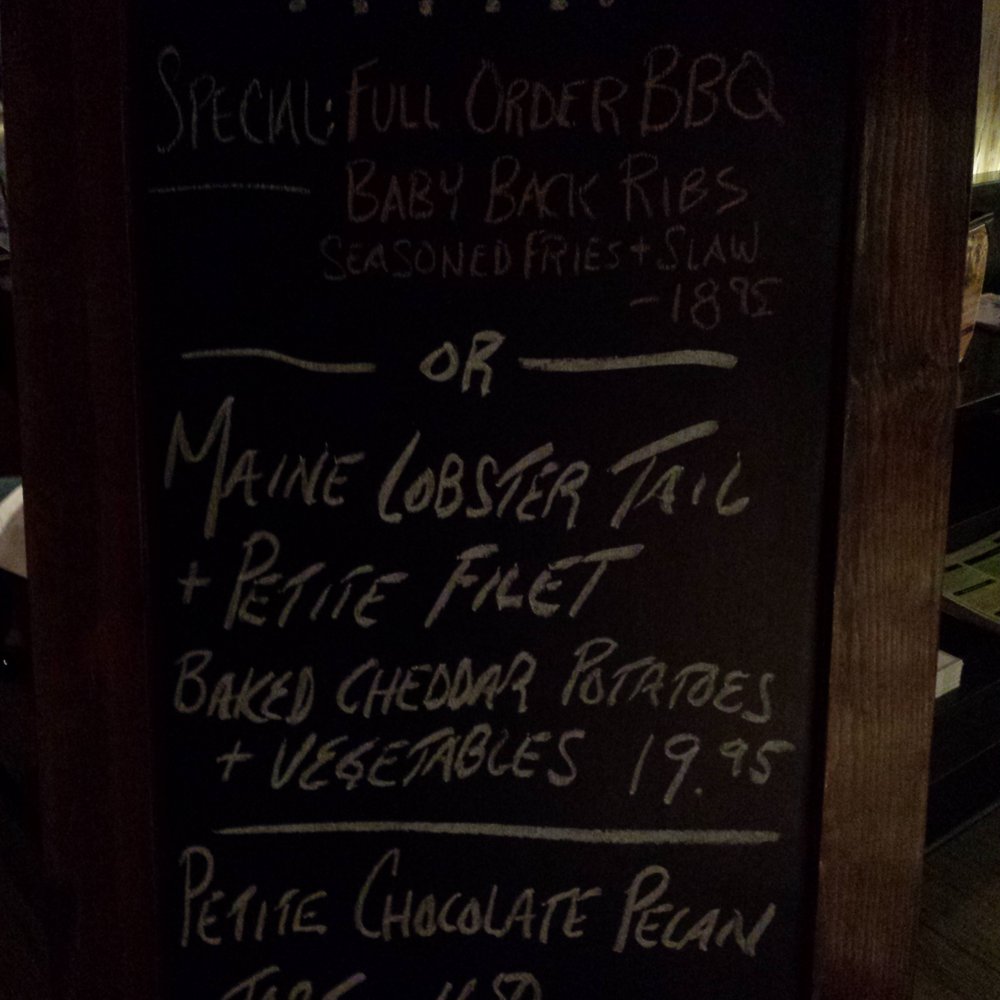 SPECIAL: FULL ORDER BBQ
BABY BACK RIBS
SEASONED FRIES + SLAW
- 18 95
OR
MAINE LOBSTER TAIL
+ PETITE FILET
BAKED CHEDDAR POTATOES
+ VEGETABLES 19.95
PETITE CHOCOLATE PECAN